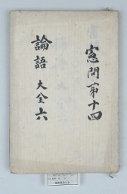 憲問第十四
論語 大全 六